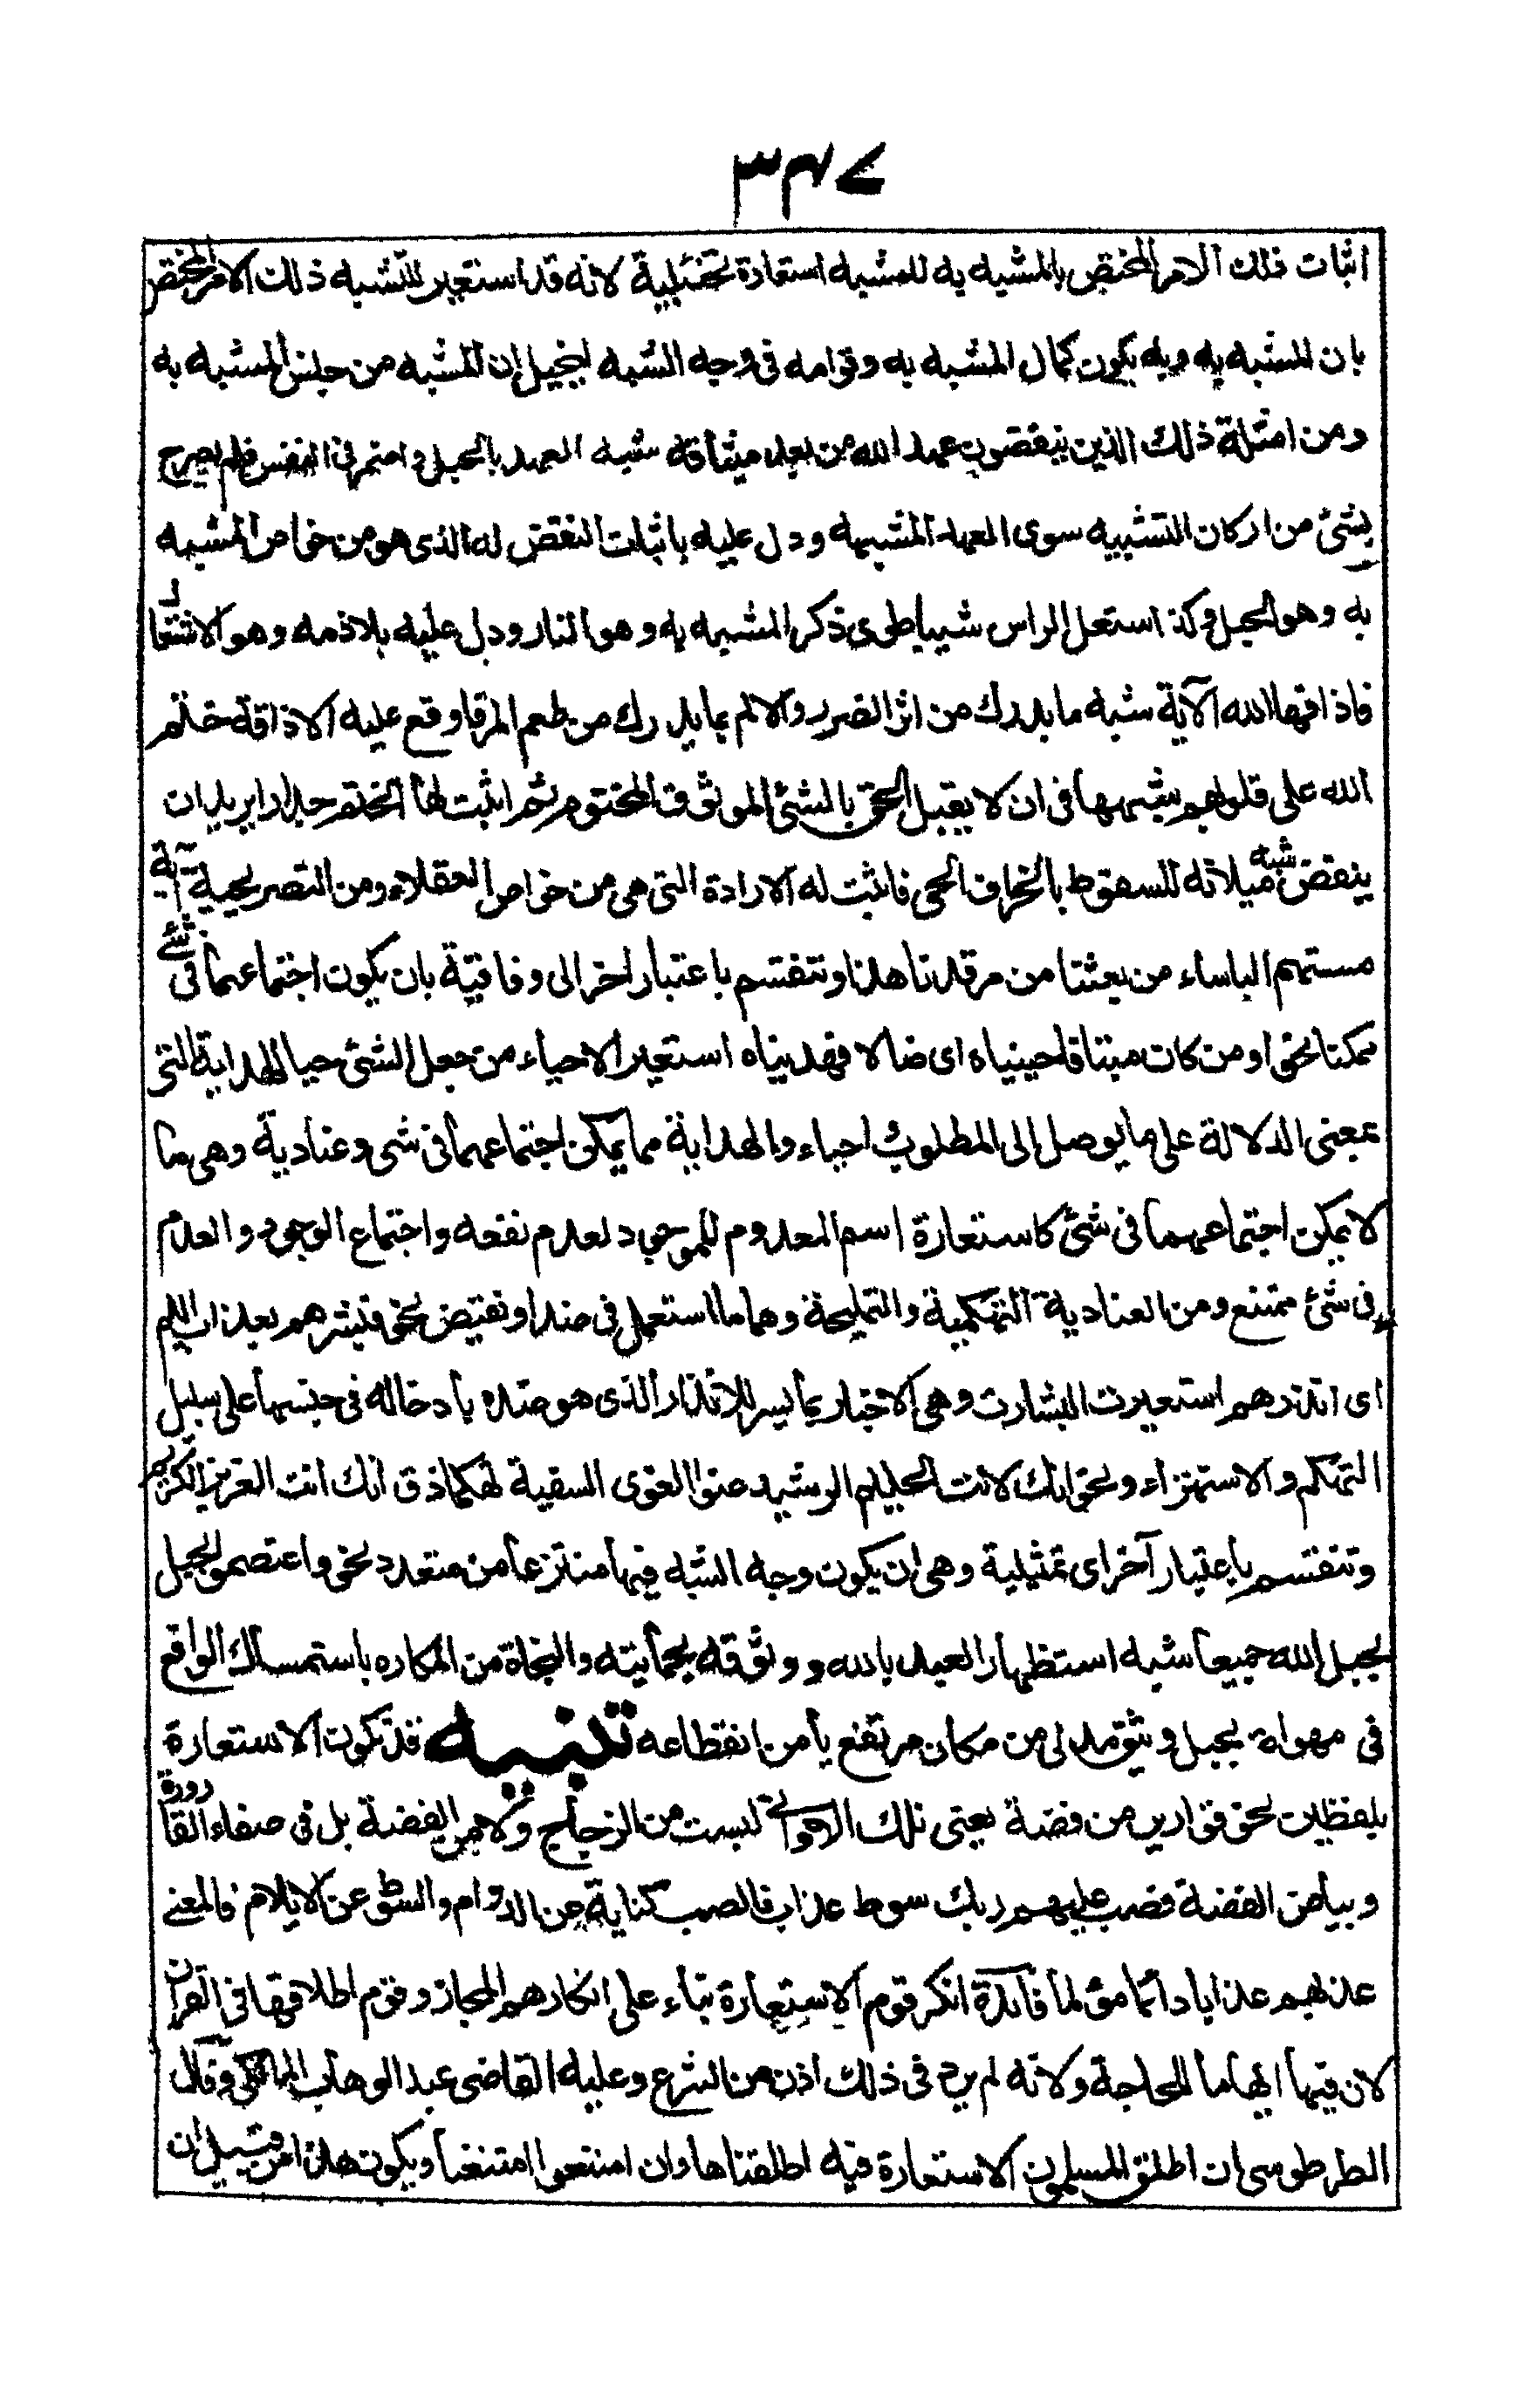 ٣٤٧
اثبات ذلك الامر المختص بالمشبه به للمشبه استعارة تخئيلية لانه قد استعير للمشبه ذلك الامر المختص
بان للمشبه به وبه يكون كمال المشبه به وقوامه فى وجه الشبه ليخيل ان المشبه من جنس المشبه به
ومن امثلة ذلك الذين ينقضون عهد الله من بعد ميثاقه شبه العهد بالحبل واضمر فى النفس فلم يصرح
بشئ من اركان التشبيه سوى العهد المشبه ودل عليه باثبات النقض له الذى هو من خواص المشبه
به وهو الحبل وكذ استعل الراس شيبا طوى ذكر المشبه به وهو النار ودل عليه بلازمه وهو الاشتعال
فاذاقها الله الآية شبه ما يدرك من اثر الضرر والالم بما يدرك من طعم المرفاوقع عليه الاذاقة ختم
الله على قلوبهم شبهها فى ان لا يقبل الحق بالشئ الموثوق المختوم ثم اثبت لها الختم جدارا يريد ان
ينقض شبه ميلانه للسقوط بانخراف الحى فاثبت له الارادة التى هى من خواص العقلاء ومن التصريحية آية
مستهم الباساء من بعثنا من مرقدنا هذا وتنقسم باعتبار اخر الى وفاقية بان يكون اجتماعهما فى شئ
ممكنا نحو اومن كان ميتا فاحييناه اى ضالا فهديناه استعير الاحياء من جعل الشئ حيا للهداية التى
بمعنى الدلالة على ما يوصل الى المطلوب و احياء والهداية مما يمكن اجتماعهما فى شى وعنادية وهى ما
لا يمكن اجتماعهما فى شئ كاستعارة اسم المعدوم للموجود لعدم نفعه واجتماع الوجود والعدم
فى شئ ممتنع ومن العنادية التهكمية والتمليحة وهما ما استعمل فى ضد او نقيض نحو فبشرهم بعذاب اليم
اى انذرهم استعيرت البشارت وهى الاخبار بما يسر للانذار الذى هو ضده بادخاله فى جنسها على سبيل
التهكم والاستهزاء ونحو انك لانت الحليم الرشيد عنوا الغوى السفية تهكما ذق انك انت العزيز الكريم
وتنقسم باعتبار آخر اى تمثيلية وهى ان يكون وجه الشبه فيها منتزعا من متعدد نحو واعتصموا بحبل
بحبل الله جميعا شبه استظهار العبد بالله ووثوقه بحمايته والنجاة من المكاره باستمساك الواقع
فى مهواة بحبل وثيق مدلى من مكان مرتفع يأمن انقطاعه تنبيه قد تكون الاستعارة
بلفظين نحو قوارير من فضة يعنى تلك الاوانى ليست من الزجاج ولا من الفضة بل فى صفاء القارورة
وبياض الفضة فصب عليهم ربك سوط عذاب فالصب كناية عن الدوام والسوط عن الايلام فالمعنے
عذبهم عذابا دائما مؤلما فآئدة انكر قوم الاستعارة بناء على انكارهم المجاز وقوم اطلاقها فى القرآن
لان فيها ايهاما للحاجة ولانه لم يرد فى ذلك اذن من الشرع وعليه القاضى عبد الوهاب المالكى وقال
الطرطوسى ان اطلق المسلمون الاستعارة فيه اطلقناها وان امتنعوا امتنعنا ويكون هذا من قبيل ان